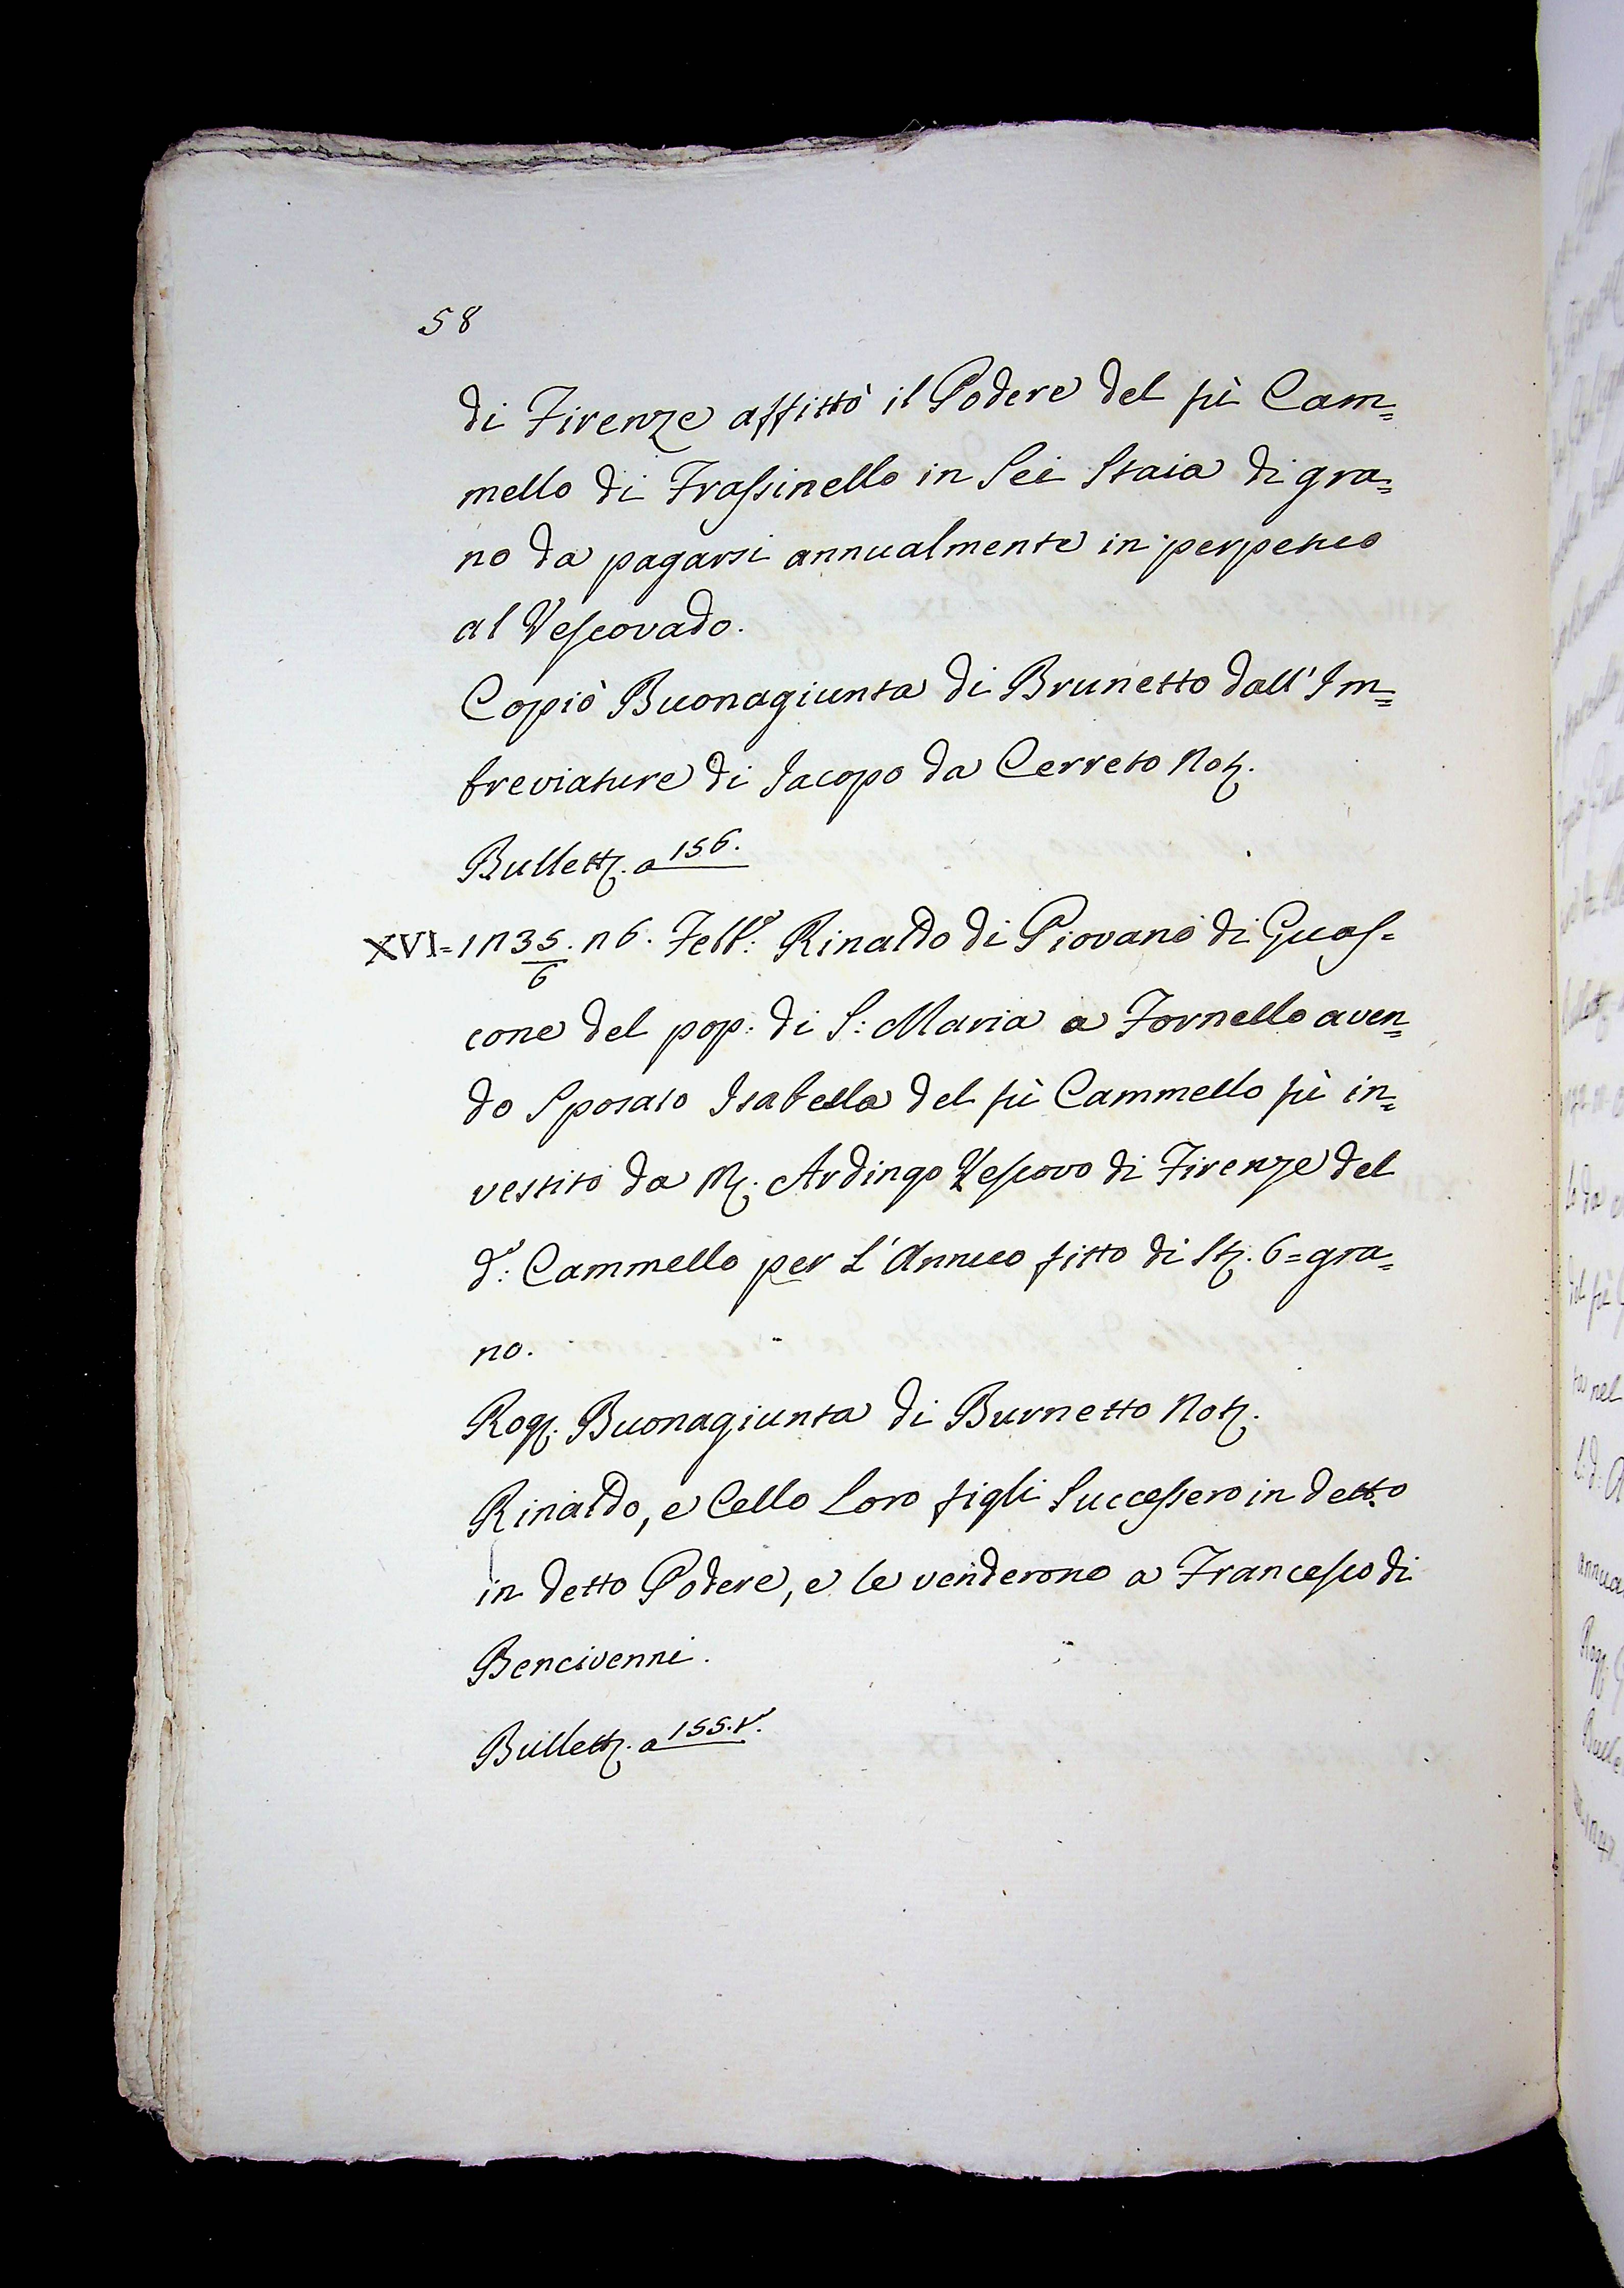 58
di Firenze affittò il Podere del fù Cam=
mello di Frassinello in Sei Staia di gra=
no da pagarsi annualmente in perpetuo
al Vescovado.
Copiò Buonagiunta di Brunetto dall'Im=
breviature di Jacopo da Cerreto Not.
Bullett. a 156.
XVI = 1235/6. 26. Febb.o Rinaldo di Piovano di Guas=
cone del pop: di S: Maria a Fornello aven=
do Sposato Isabella del fù Cammello fù in=
vestito da M. Ardingo Vescovo di Firenze del
d.o: Cammello per L'Annuo fitto di St. 6= gra=
no.
Rog. Buonagiunta di Burnetto Not.
Rinaldo, e Cello Loro figli Successero in detto
in detto Podere, e le venderono a Francesco di
Bencivenni.
Bullett. a 155.v.